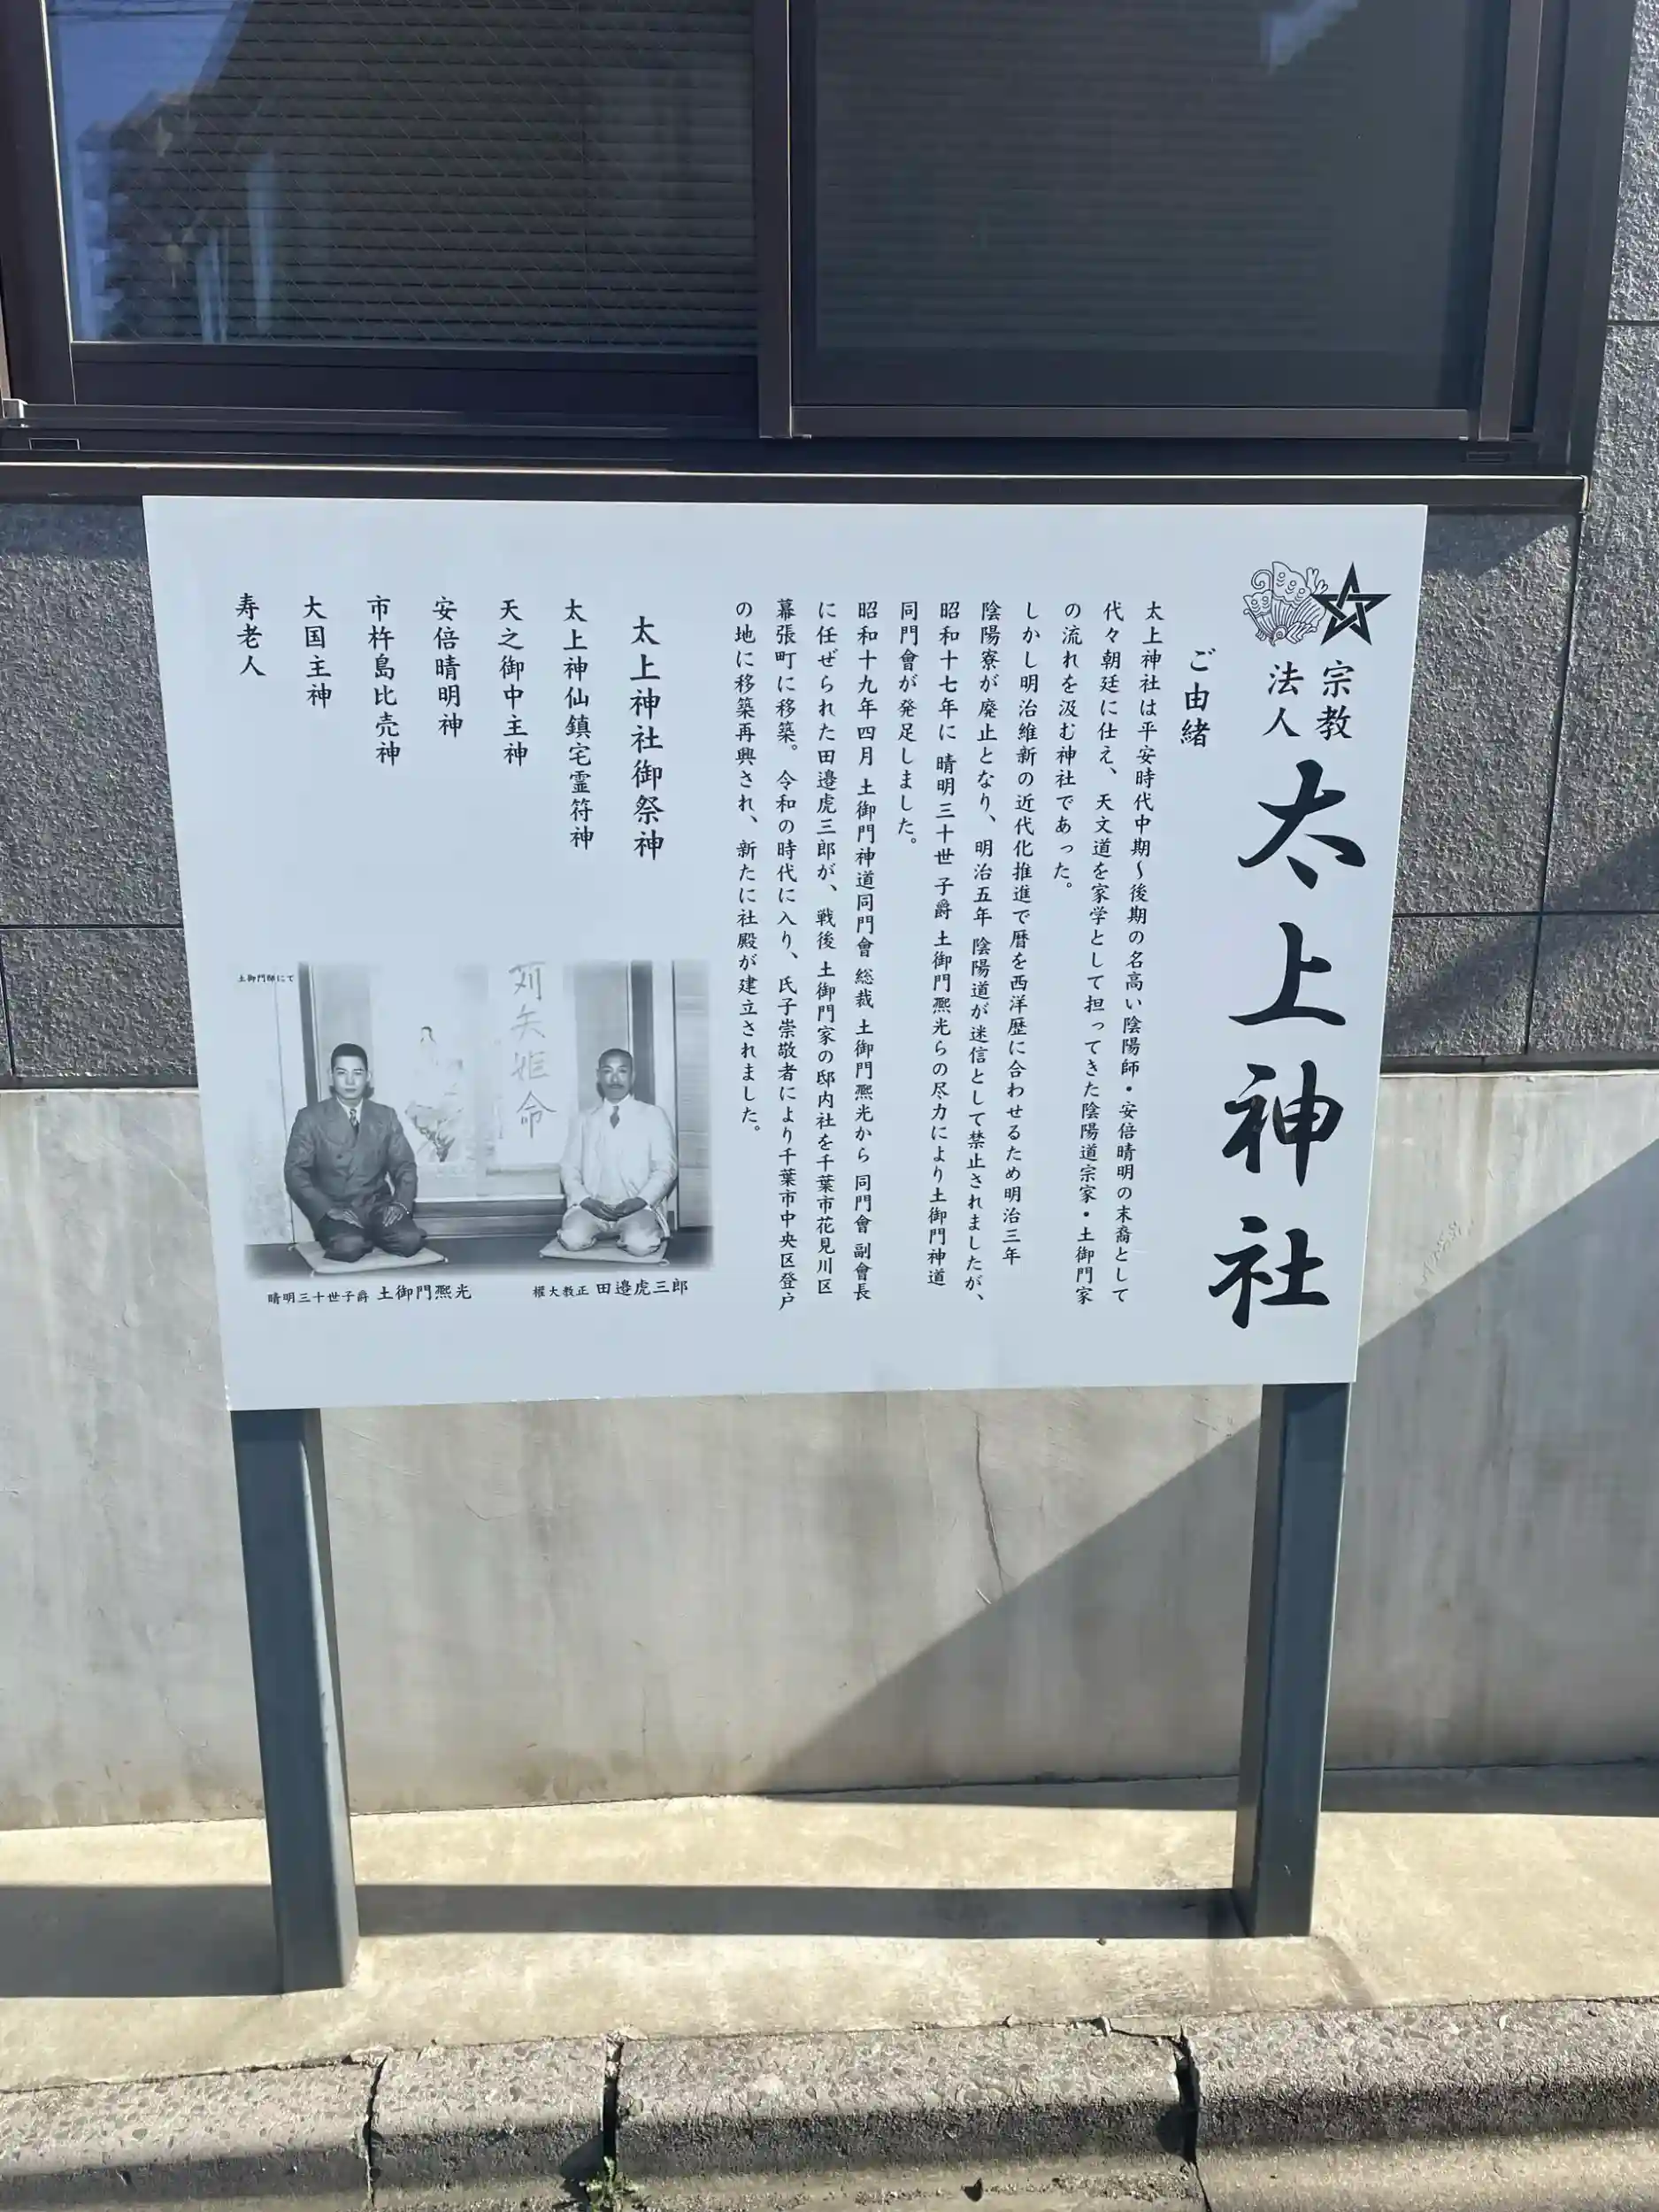 宗教
法人
太上神社
ご由緒
太上神社は平安時代中期〜後期の名高い陰陽師・安倍晴明の末裔として
代々朝廷に仕え、天文道を家学として担ってきた陰陽道宗家・土御門家
の流れを汲む神社であった。
しかし明治維新の近代化推進で暦を西洋歴に合わせるため明治三年
陰陽寮が廃止となり、明治五年 陰陽道が迷信として禁止されましたが、
昭和十七年に 晴明三十世 子爵 土御門熈光らの尽力により土御門神道
同門會が発足しました。
昭和十九年四月 土御門神道同門會 総裁 土御門熈光から 同門會 副會長
に任ぜられた田邉虎三郎が、戦後 土御門家の邸内社を千葉市花見川区
幕張町に移築。令和の時代に入り、氏子崇敬者により千葉市中央区登戸
の地に移築再興され、新たに社殿が建立されました。
太上神社御祭神
太上神仙鎮宅霊符神
天之御中主神
安倍晴明神
市杵島比売神
大国主神
寿老人
土御門邸にて
晴明三十世子爵 土御門熈光
権大教正 田邉虎三郎